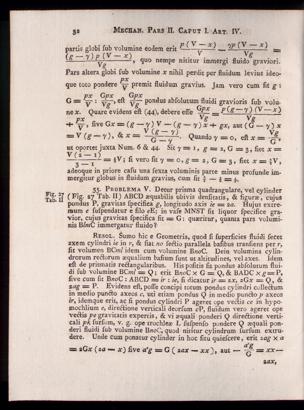 32 MECHAN. PARS II. CAPUT I. ART. IV.
partis globi sub volumine eodem erit p(V − x)/V − γp(V − x)/Vg =
(g − γ) p (V − x)/Vg, quo nempe nititur immergi fluido graviori.
Pars altera globi sub volumine x nihil perdit per fluidum levius ideo-
que toto pondere px/V premit fluidum gravius. Jam vero cum sit g :
G = px/V : Gpx/Vg, est Gpx/Vg pondus absolutum fluidi gravioris sub volu-
ne x. Quare evidens est (44), debere esse Gpx/Vg = p(g − γ)(V − x)/Vg
+ px/V, sive Gx = (g − γ) V − (g − γ) x + gx, aut (G − γ) x
= V (g − γ), & x = V(g − γ)/G − γ. Quando γ = 0, est x = Vg/G,
ut oportet juxta Num. 6 & 44. Sit γ = 1, g = 2, G = 3, fiet x =
V(2 − 1)/3 − 1 = ½V; si vero sit γ = 0, g = 2, G = 3, fiet x = ⅔V,
adeoque in priore casu una sexta voluminis parte minus profunde im-
mergitur globus in fluidum gravius, cum sit ⅔ − ½ = ⅙.
55. PROBLEMA V. Detur prisma quadrangulare, vel cylinder
Fig. 27
Tab. II
(Fig. 27 Tab. II) ABCD æquabilis ubivis densitatis, & figuræ, cujus
pondus P, gravitas specifica g, longitudo axis ie = 2a. Hujus extre-
mum e suspendatur e filo eE; in vase MNST sit liquor specifice gra-
vior, cujus gravitas specifica sit = G: quæritur, quanta pars volumi-
nis BmC immergatur fluido?
RESOL. Sumo hic e Geometria, quod si superficies fluidi secet
axem cylindri ie in r, & fiat no sectio parallela basibus transiens per r,
sit volumen BCml idem cum volumine BnoC. Dein volumina cylin-
drorum rectorum æqualium basium sunt ut altitudines, vel axes. Idem
est de prismatis rectangularibus. His positis sit pondus absolutum flui-
di sub volumine BCml = Q; erit BnoC × G = Q, & BADC × g = P,
sive cum sit BnoC : ABCD = ir : ie, si dicatur ir = x, xGx = Q, &
2ag = P. Evidens est, posse concipi totum pondus cylindri collectum
in medio puncto axeos c, uti etiam pondus Q in medio puncto p axeos
ir, idemque erit, ac si pondus cylindri P ageret ope vectis ce in hypo-
mochlium e, directione verticali deorsum cP, fluidum vero ageret ope
vectis pe gravitatis expertis, & vi æquali ponderi Q directione verti-
cali pL sursum, v. g. ope trochleæ L suspenso pondere Q æquali pon-
deri fluidi sub volumine BnoC, quod nititur cylindrum sursum extru-
dere. Unde cum ponatur cylinder in hoc situ quiescere, erit 2ag × a
= xGx (2a − x) sive a²g = G (2ax − xx), aut − a²g/G = xx —
2ax,